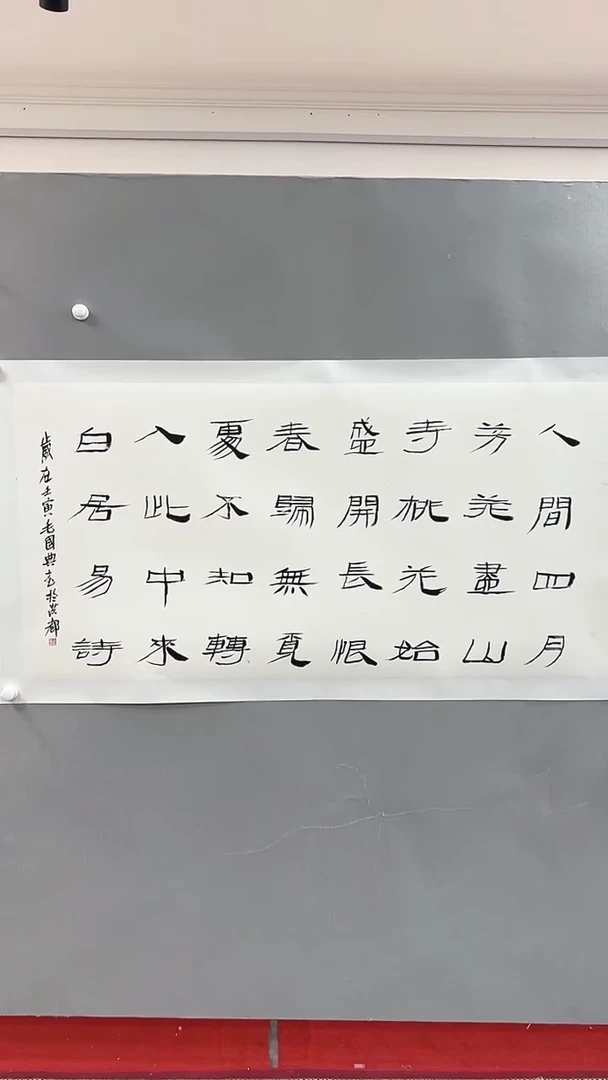 人間四月
芳菲盡山
寺桃花始
盛開長恨
春歸無覓
處不知轉
入此中來
白居易詩
歲在壬寅毛國典書於都